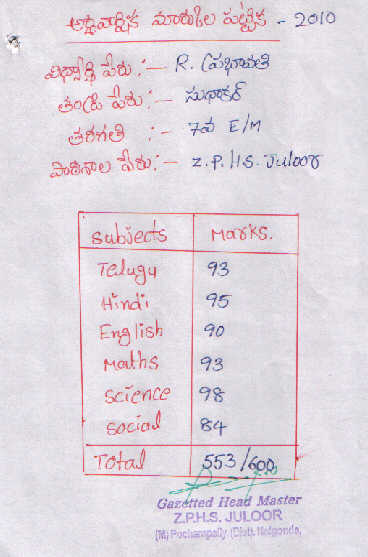 అర్ధవార్షిక మార్కుల పట్టిక - 2010
విద్యార్థి పేరు:- R. ప్రభావతి
తండ్రి పేరు:- సుధాకర్
తరగతి :- 7వ E/M
పాఠశాల పేరు:- Z.P.H.S. Juloor
Subjects Marks.
Telugu 93
Hindi 95
English 90
Maths 93
Science 98
Social 84
Total 553/600
Gazetted Head Master
Z.P.H.S. JULOOR
(M) Pochampally, (Dist). Nalgonda.